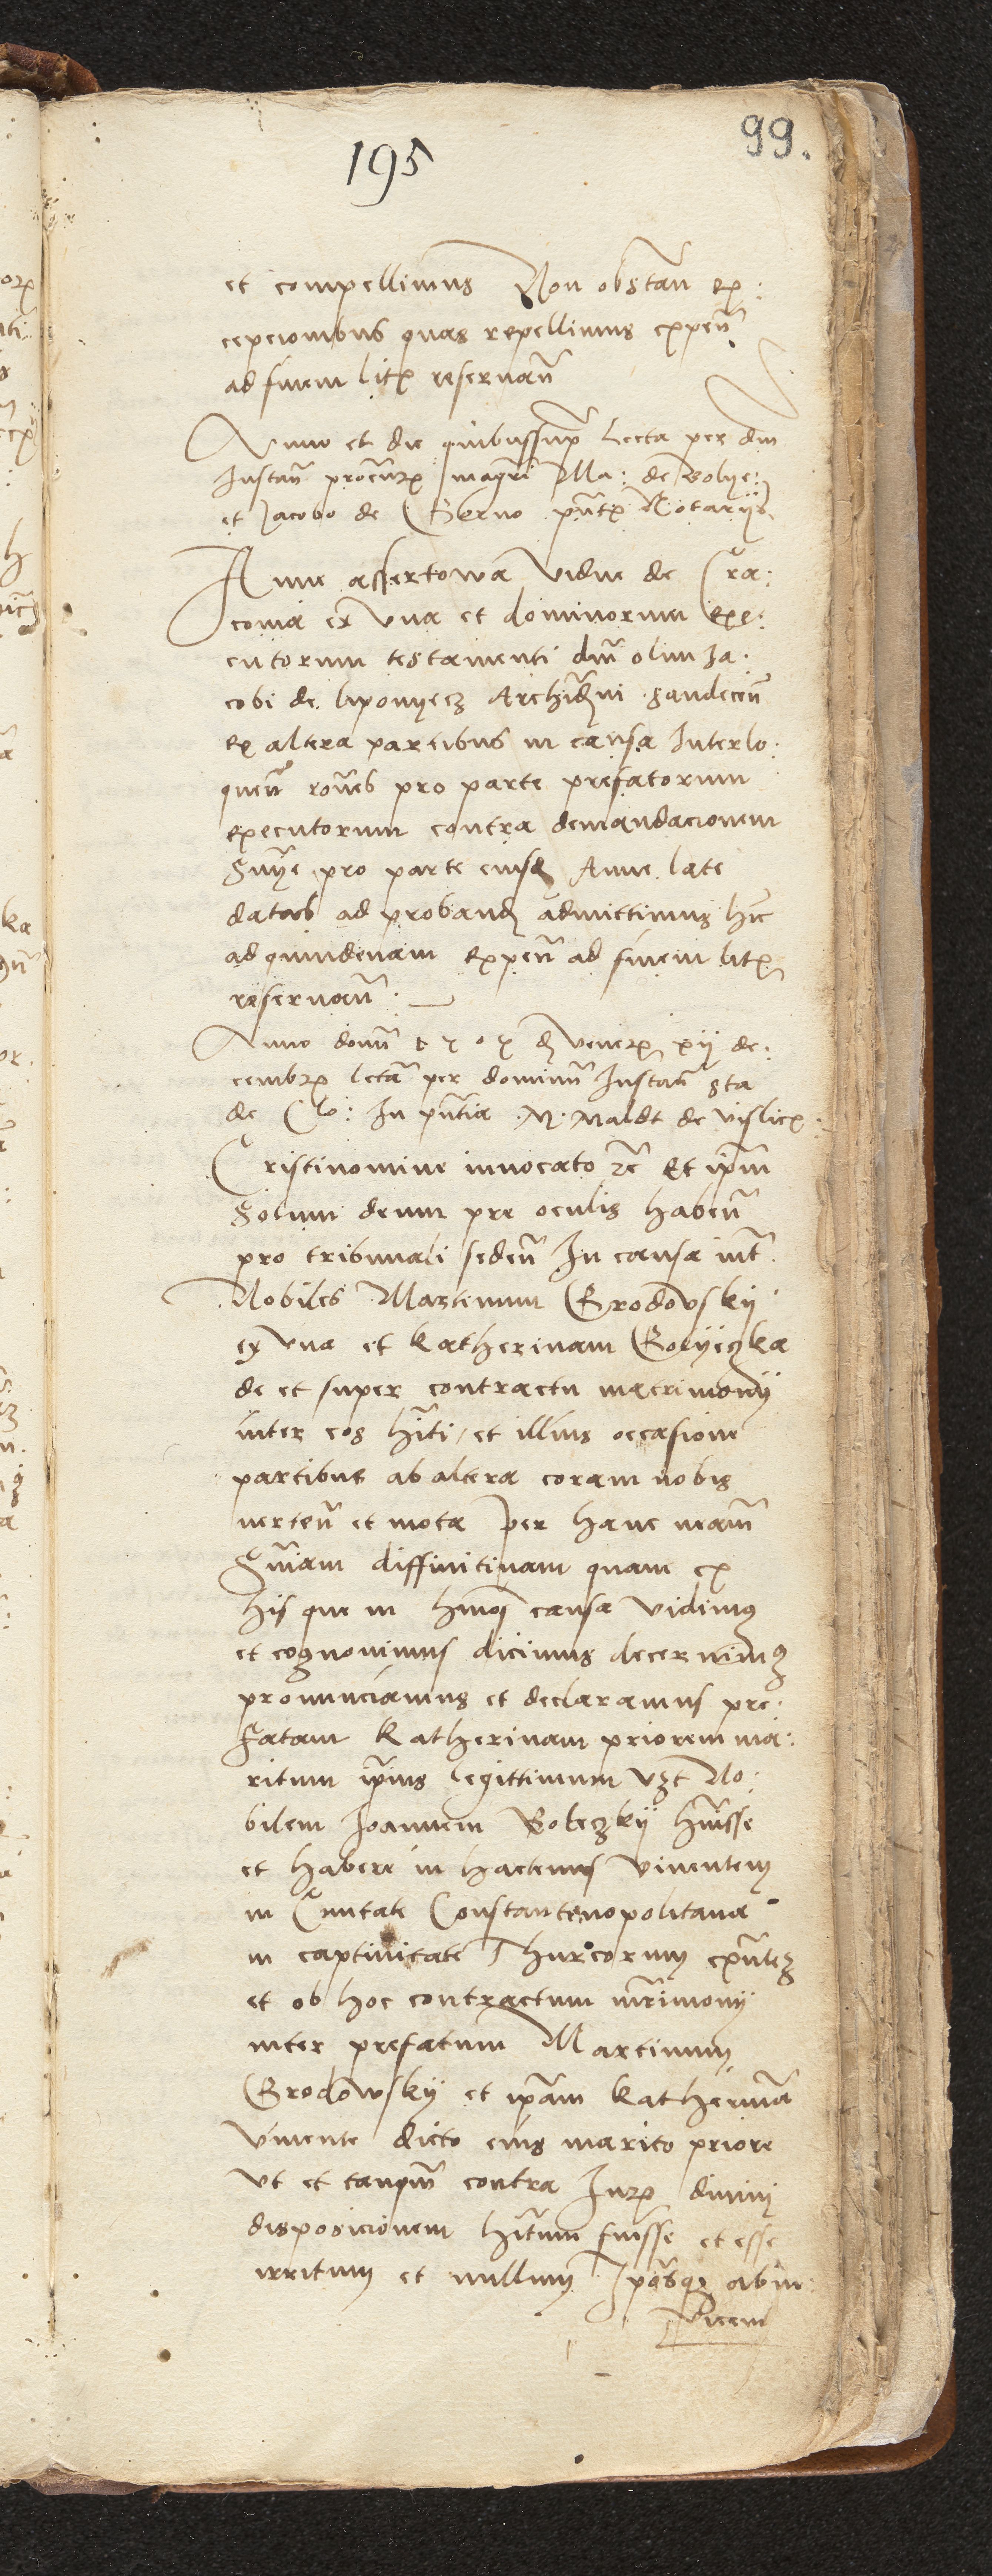 99.
195
et compellimus Non obstan̄ ex:
cepcionibus quas repellimus expen̄
ad finem litis reservan̄
Anno et die quibus supra Lecta per dm̄
Instan̄ procur̄ magri Ma: de Bolye:
et Jacobo de Gerno pn̄t Notariis
Anne assertowa vidue de Cra:
covia ex vna et dominorum exe:
cutorum testamenti dm̄ olim Ja.
cobi de liponyecz Archidn̄i Sandecen̄
ex altera partibus in causa Interlo:
quen̄ rōnes pro parte prefatorum
executorum contra demandacionem
Sn̄ie pro parte eiusd Anne late
datas ad proband admittimus hic
ad quindenam expen̄ ad finem litis
reservan̄ .
Anno domī 1505 d veneris xii de:
cembris lecta per dominū Instan̄ Sta
de Clo: In pn̄tia M. Maldt de vislicz:
Cristi nomine invocato zc Et ipm̄
Solum deum pre oculis haben̄
pro tribunali seden̄ In causa int
Nobiles Martinum Grodowsky
ex vna et Katherinam Golyczka
de et super contractu matrimonii
inter eos hīti et illius occasione
partibus ab altera coram nobis
verten̄ et mota Per hanc nr̄am
Sn̄iam diffinitivam quam ex
his que in hmōi causa vidimus
et cognovimus dicimus decernimus
pronunciamus et declaramus pre:
fatam Katherinam priorem ma:
ritum ipius legittimum vzt No:
bilem Joannem Boleczky huisse
et habere in hactenus viventem
in Civitate Constantenopolitana
in captivitate Thurcorum exn̄tez
et ob hoc contractum mr̄imonii
inter prefatum Martinum
Grodowsky et ipam Katherinā
vivente dicto eius marito priore
vt et tanqm̄ contra Juris divini
disposicionem hitum fuisse et esse
irritum et nullum Ipasqz abin:
vicem